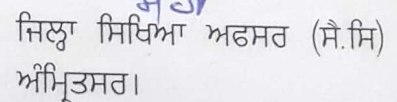 ਜਿਲ੍ਹਾ ਸਿਖਿਆ ਅਫਸਰ (ਸੈ.ਸਿ)
ਅੰਮ੍ਰਿਤਸਰ।